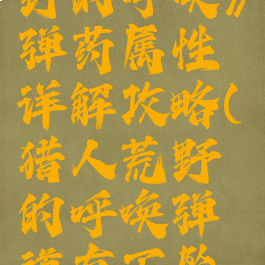 野的呼唤》
弹药属性
详解攻略(
猎人荒野
的呼唤弹